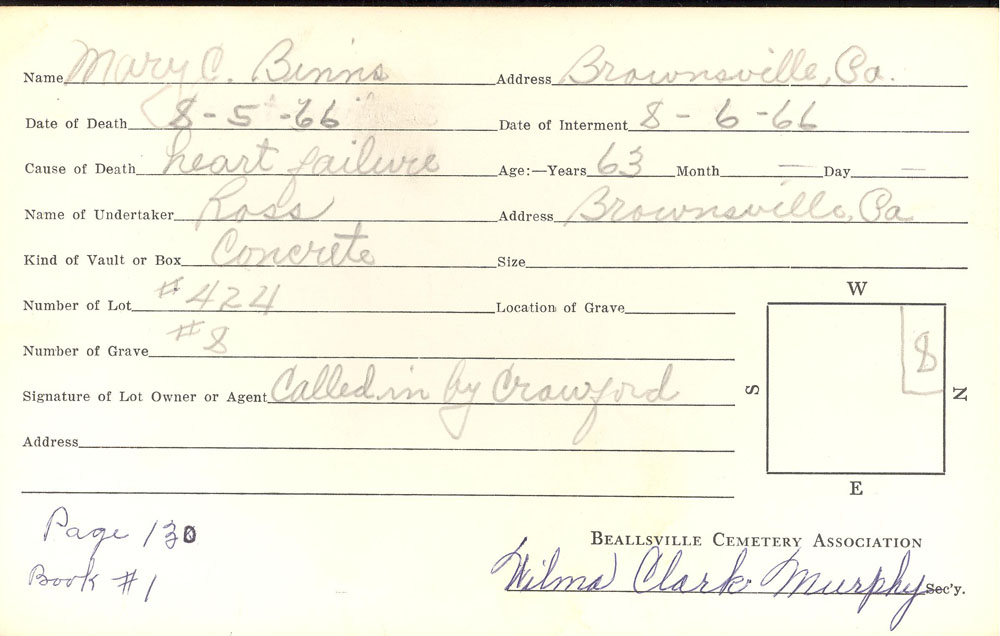 Name Mary C. Binns Address Brownsville, Pa.
Date of Death 8-5-66 Date of Interment 8-6-66
Cause of Death heart failure Age:—Years 63 Month — Day —
Name of Undertaker Ross Address Brownsville, Pa
Kind of Vault or Box Concrete Size
Number of Lot #424 Location of Grave
Number of Grave #8
Signature of Lot Owner or Agent Called in by Crawford
Address
W
S 8 N
E
Page 130
Book #1
BEALLSVILLE CEMETERY ASSOCIATION
Wilma Clark Murphy Sec'y.